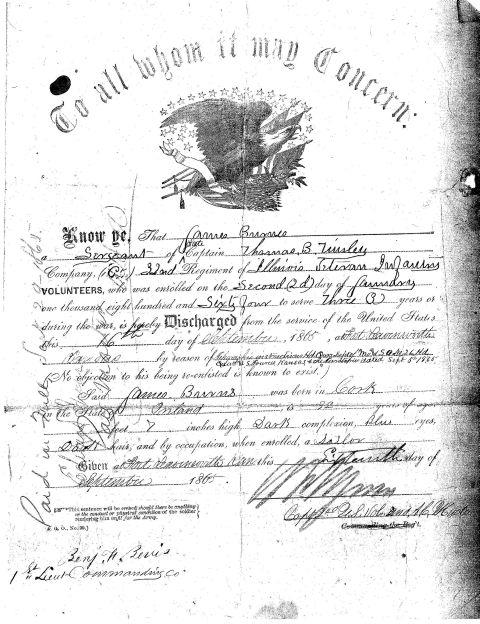 To all whom it may Concern:
Know ye, That James Burnes
a Sergeant of late Captain Thomas B. Tinsley
Company, 32nd Regiment of Illinois Veteran Infantry
VOLUNTEERS, who was enrolled on the Second (2d) day of January
one thousand eight hundred and Sixty four to serve Three (3) years or
during the war, is hereby Discharged from the service of the United States
this 16th day of September, 1865, at Fort Leavenworth
Kansas by reason of
Sept 8th 1865
No objection to his being re-enlisted is known to exist.
Said James Burns was born in Cork
in the State of Ireland years of age,
feet 7 inches high, Dark complexion, Blue eyes,
Dark hair, and by occupation, when enrolled, a
Given at Fort Leavenworth Kan this Sixteenth day of
September 1865.
*This sentence will be erased should there be anything
in the conduct or physical condition of the soldier
rendering him unfit for the Army.
[A. G. O., No. 99.]
Commanding the Reg't.
Benj F. Bevis
1st Lieut Commanding Co.
Paid in full Sept 29 1865